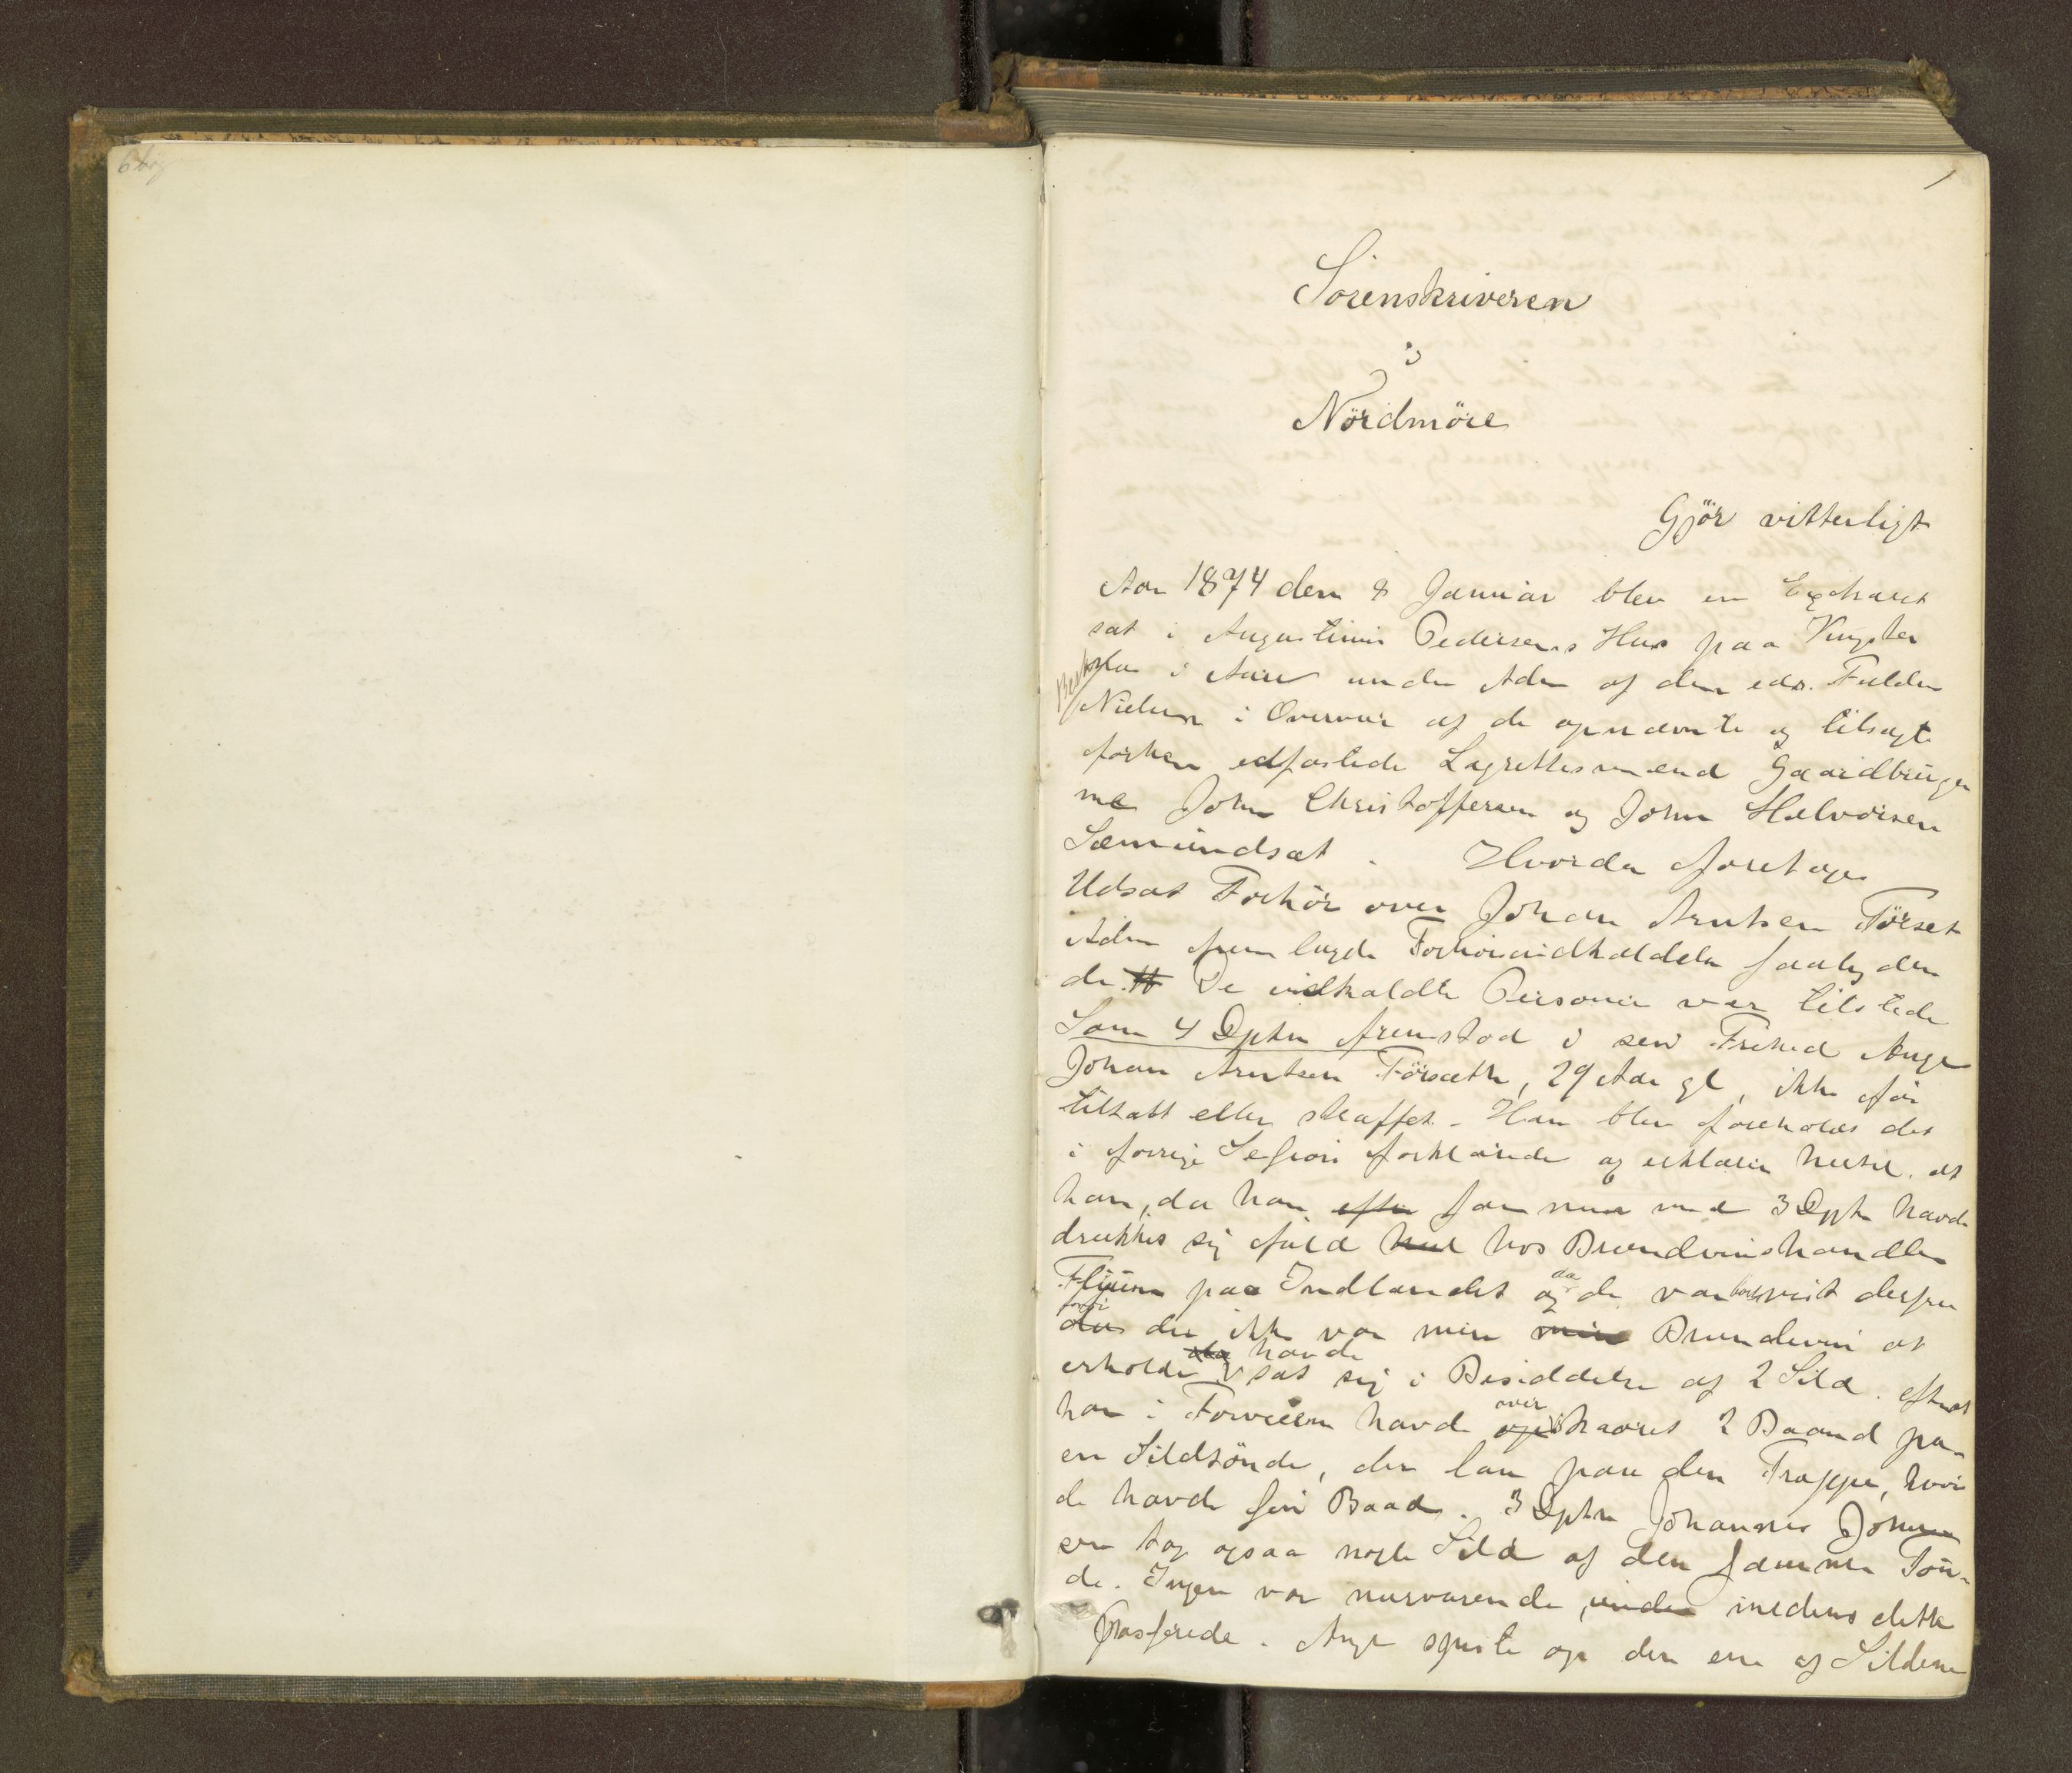 1
Sorenskriveren
i
Nördmöre
Gjör vitterligt
Aar 1874 den 8 Januar blev en Extraret
sat i Augustinus Pedersens Hus paa
i Aure under Adm af den eds. Fuldm
Nielsen i Overvær af de opnævnte og tilsagte
forhen edfæstede Lagrettesmænd Gaardbruger
ne John Christoffersen og John Halvorsen
Sæmundsæt. Hvorda foretoges
Udsat Forhör over Johan Arntsen Törset
Adm fremlagde Forhörsindkaldelse saalyden
de. De indkaldte Personer var tilstede
Som 4 Dptn fremstod i sin Frihed Ange
Johan Arntsen Törsæth, 29 Aar gl, ikke för
tiltalt eller straffet. Han blev foreholdt det
i forrige Session forklarede og erklærer hertil, at
han, da han efter sammen med 3 Dptn havde
drukket sig fuld hos Brændevinshandler
paa Indlandet og da de var bortvist derfra
fordi der ikke var mere Brændevin at
erholde havde sat sig i Besiddelse af 2 Sild. efterat
han i Forveien havde overskaaret 2 Baand paa
en Sildtönde, der laa paa den Trappe, hvor
de havde sin Baad. 3 Dptn Johannes Johnn
sen tog ogsaa nogle Sild af den samme Tön-
de. Ingen var nærværende, under imedens dette
passerede. Ange spiste op den ene af Sildene